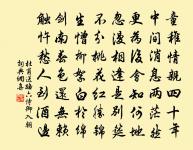 童稚情親四十年
中間消息兩茫然
更為後會知何地
忽漫相逢是別筵
不分桃花紅似錦
生憎柳絮白於綿
劍南春色還無賴
觸忤愁人到酒邊
杜甫送路六侍御入朝